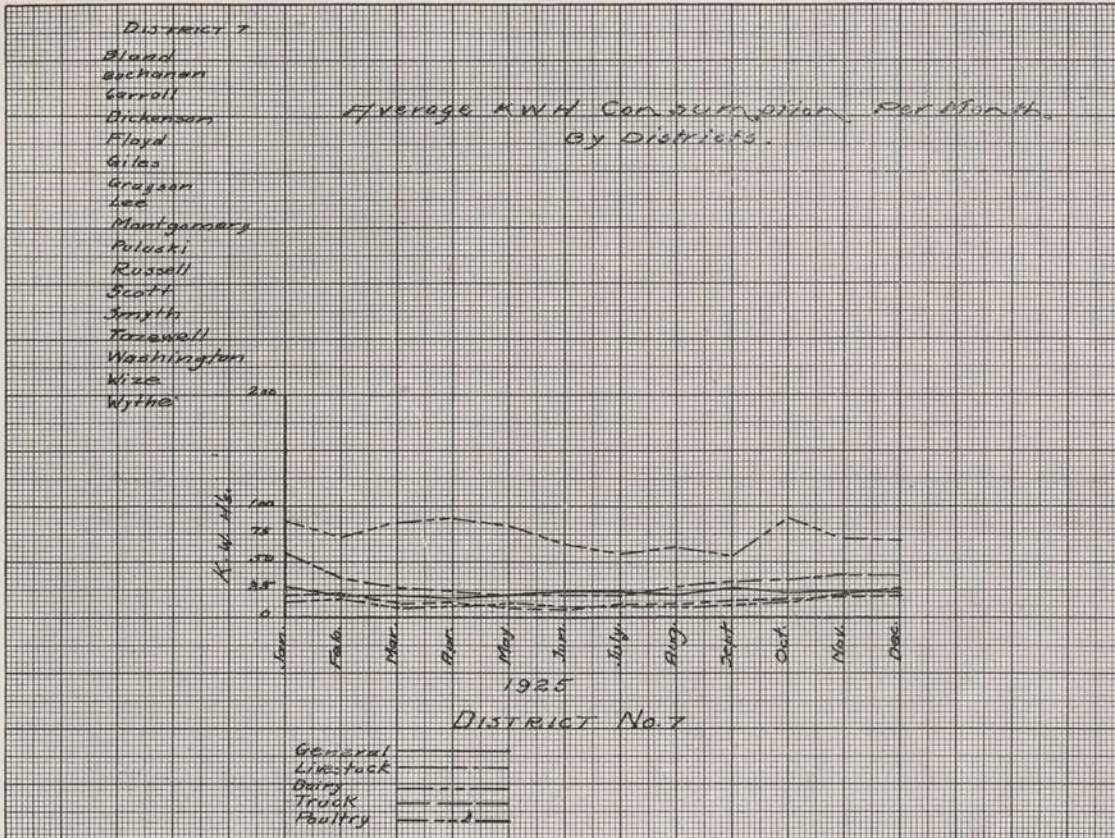 DISTRICT 7
Bland
Buchanan
Carroll
Dickenson
Floyd
Giles
Grayson
Lee
Montgomery
Pulaski
Russell
Scott
Smyth
Tazewell
Washington
Wize
Wythe
Average KWH Consumption Per Month.
By Districts.
200
100
75
50
25
0
K.W.Hs.
Jan. Feb. Mar. Apr. May. Jun. July. Aug. Sept. Oct. Nov. Dec.
1925
DISTRICT No. 7
General
Livestock
Dairy
Truck
Poultry